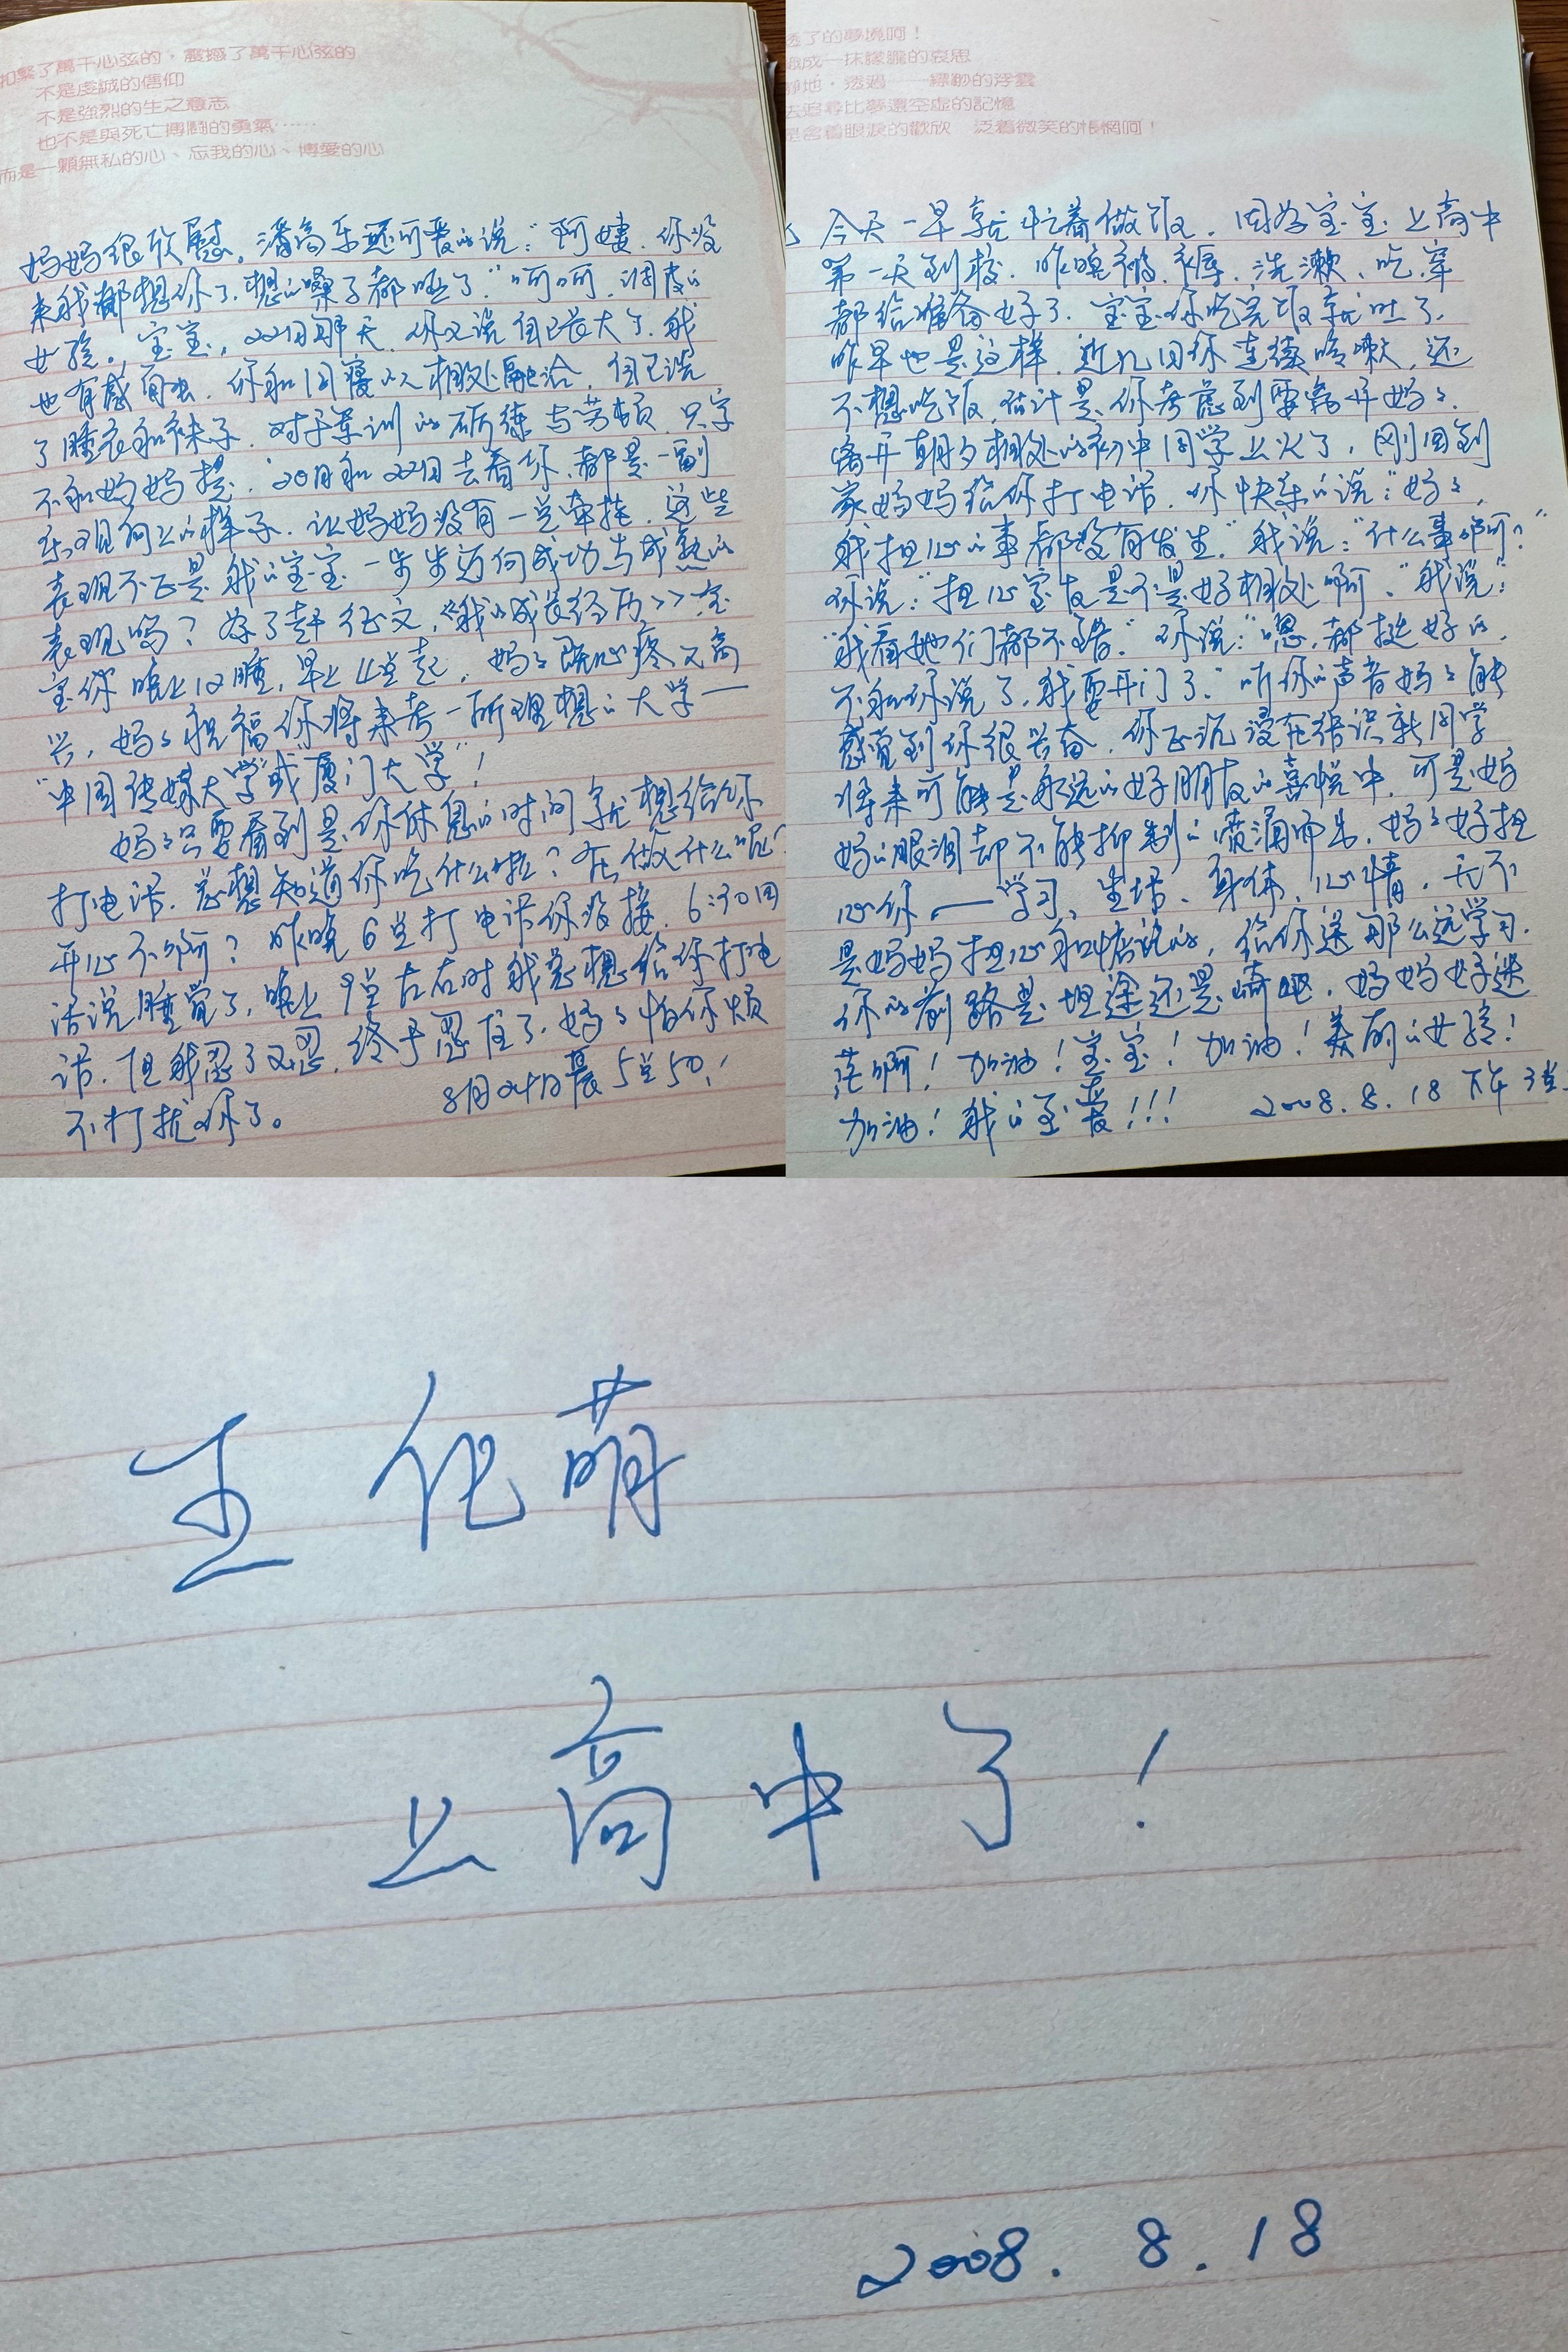 扣緊了萬千心弦的，震撼了萬千心弦的
不是虔誠的信仰
不是強烈的生之意志
也不是與死亡搏鬪的勇氣……
而是一顆無私的心、忘我的心、博愛的心
妈妈很欣慰。潘高乐还可爱的说：“阿姨，你没
来我都想你了，想的嗓子都哑了”呵呵，调皮的
女孩。宝宝，22日那天，你又说自己长大了，我
也有感而出，你和同寝的人相处融洽，自己洗
了睡衣和袜子，对于军训的砺练与劳顿，只字
不和妈妈提，20日和22日去看你，都是一副
乐观向上的样子，让妈妈没有一点牵挂，这些
表现不正是我的宝宝一步步迈向成功与成熟的
表现吗？为了赶征文，《我的成长经历》宝
宝你晚上12睡，早上4点起，妈妈既心疼又高
兴，妈妈祝福你将来考一所理想的大学—
“中国传媒大学或厦门大学”！
妈妈只要看到是你休息的时间就想给你
打电话，总想知道你吃什么啦？在做什么呢？
开心不啊？昨晚6点打电话你没接，6:30回
话说睡觉了，晚上9点左右时我总想给你打电
话，但我忍了又忍，终于忍住了，妈妈怕你烦
不打扰你了。 8月24日晨5点50！
透了的夢境啊！
成一抹朦朧的哀思
靜地，透過——縹緲的浮雲
去追尋比夢還空虛的記憶
是含着眼淚的歡欣 泛着微笑的悵惘啊！
今天一早就忙着做饭，因为宝宝上高中
第一天到校，昨晚被、褥、洗漱、吃、穿
都给准备好了，宝宝你吃完饭就吐了，
昨早也是这样，近几日你连续咳嗽，还
不想吃饭，估计是你考虑到要离开妈妈，
离开朝夕相处的初中同学上火了，刚回到
家妈妈给你打电话，你快乐的说：“妈妈，
我担心的事都没有发生”我说：“什么事啊？”
你说：“担心室友是不是好相处啊。”我说：
“我看她们都不错。”你说：“嗯，都挺好的，
不和你说了，我要开门了。”听你的声音妈妈能
感觉到你很兴奋，你正沉浸在结识新同学
将来可能是永远的好朋友的喜悦中，可是妈
妈的眼泪却不能抑制的喷涌而出，妈妈好担
心你——学习、生活、身体、心情，无不
是妈妈担心和惦记的，给你送那么远学习，
你的前路是坦途还是崎岖，妈妈好迷
茫啊！加油！宝宝！加油！美丽的女孩！
加油！我的至爱！！！ 2008.8.18 下午3点
王化萌
上高中了！
2008.8.18